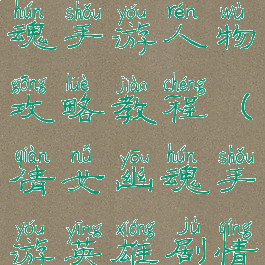 hún shǒu yóu rén wù
魂手游人物
gōng lüè jiào chéng
攻略教程（
qiàn nǚ yōu hún shǒu
倩女幽魂手
yóu yīng xióng jù qíng
游英雄剧情